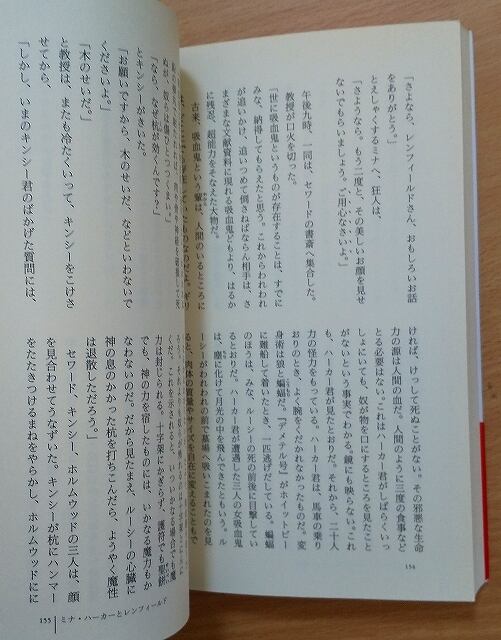 「さよなら、レンフィールドさん、おもしろいお話
をありがとう。」
とえしゃくするミナへ、狂人は、
「さようなら。もう二度と、その美しいお顔を見せ
ないでもらいましょう。ご用心なさいよ。」
午後九時、一同は、セワードの書斎へ集合した。
教授が口火を切った。
「世に吸血鬼というものが存在することは、すでに
みな、納得してもらえたと思う。これからわれわれ
が追いかけ、追いつめて倒さねばならん相手は、さ
まざまな文献資料に現れる吸血鬼どもより、はるか
に残忍、超能力をそなえた大物だ。
古来、吸血鬼という輩は、人間のいるところに
ければ、けっして死ぬことがない。その邪悪な生命
力の源は人間の血だ。人間のように三度の食事など
とる必要はない。これはハーカー君がしばらくいっ
しょにいても、奴が物を口にするところを見たこと
がないという事実でわかる。鏡にも映らない。これ
も、ハーカー君が見たとおりだ。それから、二十人
力の怪力をもっている。ハーカー君は、馬車の乗り
おりのとき、よく腕をくだかれなかったものだ。変
身術は狼と蝙蝠だ。『デメテル号』がホイットビー
に難船して着いたとき、一匹逃げだしている。蝙蝠
のほうは、みな、ルーシーの死の前後に目撃してい
るとおりだ。ハーカー君が遭遇した三人の女吸血鬼
は、塵に化けて月光の中を飛んできたともいう。ル
ーシーがわれわれの前で墓場へ吸いこまれたのを見
ると、肉体の質量やサイズを自在に変えることもで
154
とキンシーがきいた。
「お願いですから、木のせいだ、などといわないで
くださいよ。」
「木のせいだ。」
と教授は、またも冷たくいって、キンシーをこけさ
せてから、
「しかし、いまのキンシー君のばかげた質問には、
力は封じられる。十字架にかぎらず、護符でも聖餅
でも、神の力を宿したものには、いかなる魔力もか
なわないのだ。だから見たまえ、ルーシーの心臓に
神の息のかかった杭を打ちこんだら、ようやく魔性
は退散しただろう。」
セワード、キンシー、ホルムウッドの三人は、顔
を見合わせてうなずいた。キンシーが杭にハンマー
をたたきつけるまねをやらかし、ホルムウッドにに
155 ミナ・ハーカーとレンフィールド